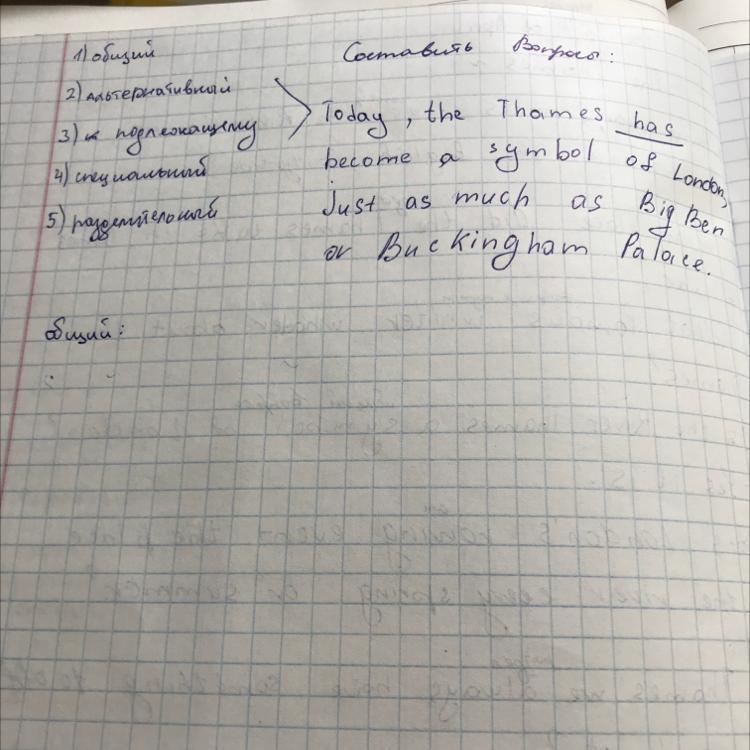 1) общий
2) альтернативный
3) к подлежащему
4) специальный
5) разделительный
Составить вопросы:
Today, the Thames has
become a symbol of London,
just as much as Big Ben
or Buckingham Palace.
общий: